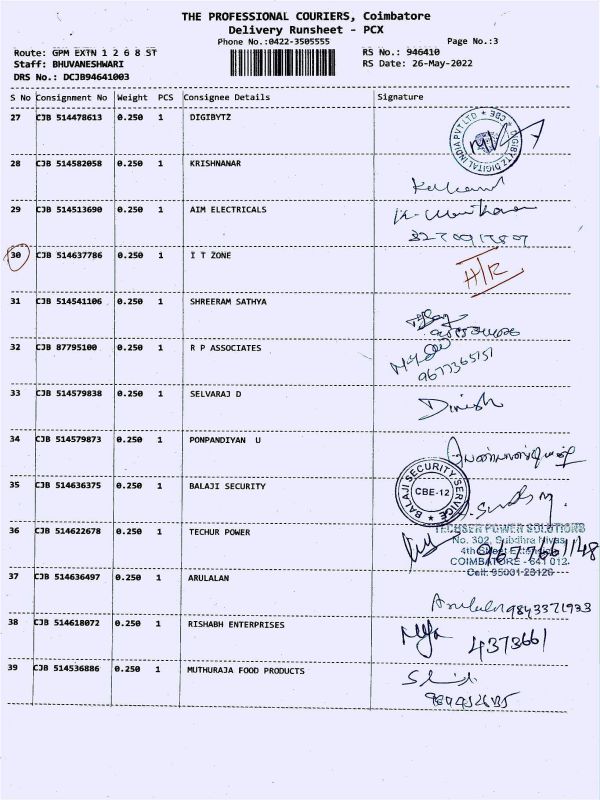 THE PROFESSIONAL COURIERS, Coimbatore
Delivery Runsheet - PCX
Phone No.:0422-3505555
Page No.:3
Route: GPM EXTN 1 2 6 8 ST
RS No.: 946410
Staff: BHUVANESHWARI
RS Date: 26-May-2022
DRS No.: DCJB94641003
S No Consignment No Weight PCS Consignee Details Signature
27 CJB 514478613 0.250 1 DIGIBYTZ
DIGIBYTZ DIGITAL INDIA PVT LTD ★ CBE
28 CJB 514582058 0.250 1 KRISHNANAR
29 CJB 514513690 0.250 1 AIM ELECTRICALS
30 CJB 514637786 0.250 1 I T ZONE H/R
31 CJB 514541106 0.250 1 SHREERAM SATHYA
32 CJB 87795100 0.250 1 R P ASSOCIATES
9677365151
33 CJB 514579838 0.250 1 SELVARAJ D Dinesh
34 CJB 514579873 0.250 1 PONPANDIYAN U
35 CJB 514636375 0.250 1 BALAJI SECURITY
BALAJI SECURITY SERVICE ★
CBE-12
36 CJB 514622678 0.250 1 TECHUR POWER
TECHSER POWER SOLUTIONS
No. 302, Subdhra Nivas,
4th Street Extension
COIMBATORE - 641 012.
Cell: 95001-23128
37 CJB 514636497 0.250 1 ARULALAN
Arulalan 9843371933
38 CJB 514618072 0.250 1 RISHABH ENTERPRISES
4373661
39 CJB 514536886 0.250 1 MUTHURAJA FOOD PRODUCTS